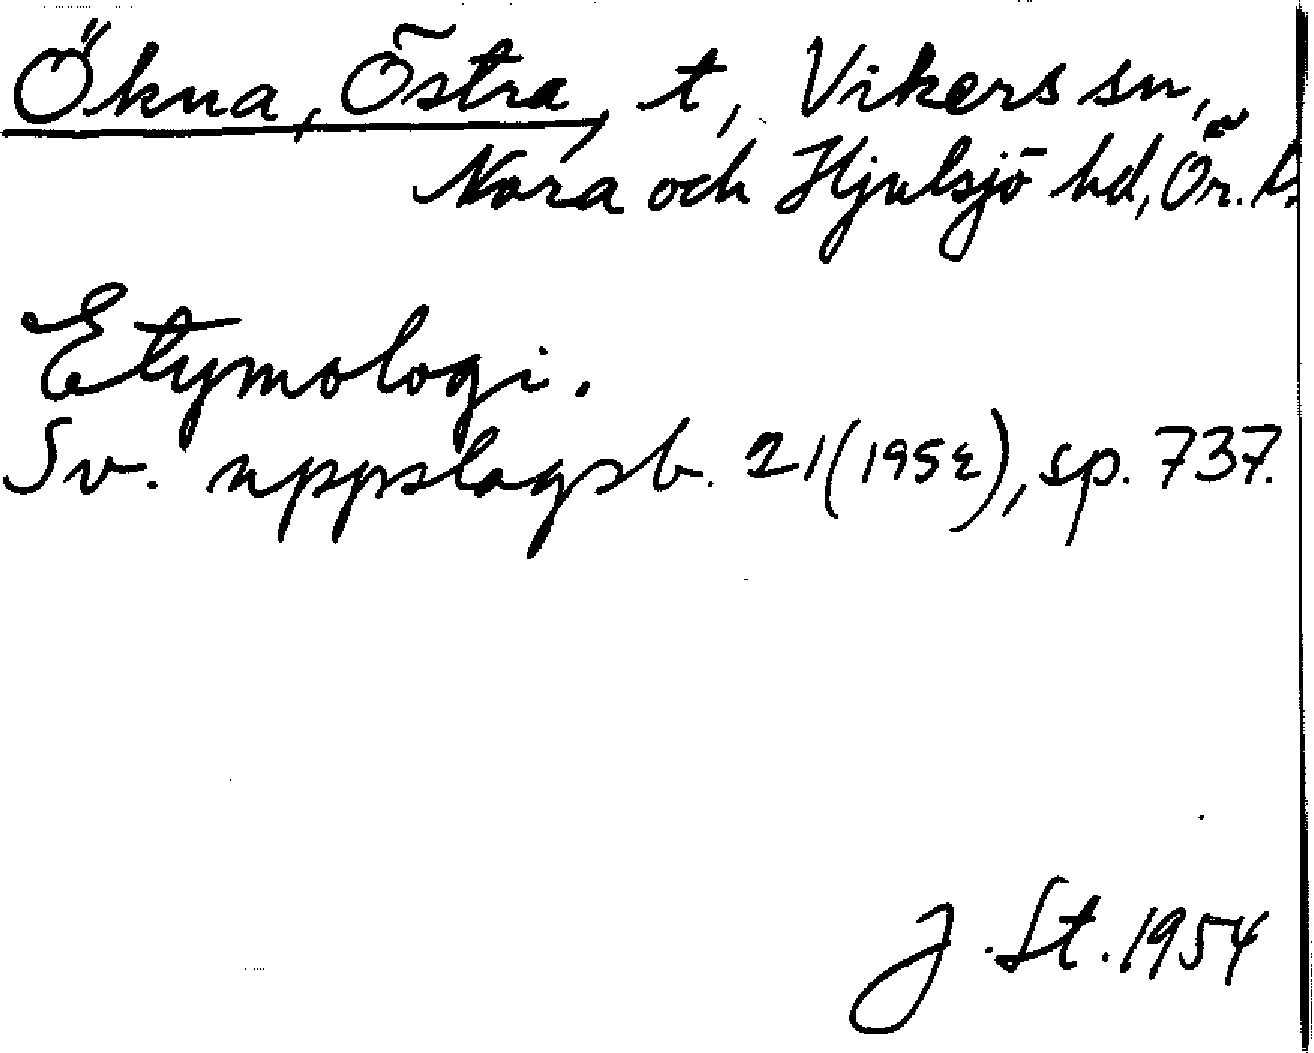 Ökna, Östra, t, Vikers sn,
Nora och Hjulsjö hd, Ör. l.
Etymologi.
Sv. uppslagsb. 21 (1952), sp. 737.
J. St. 1954